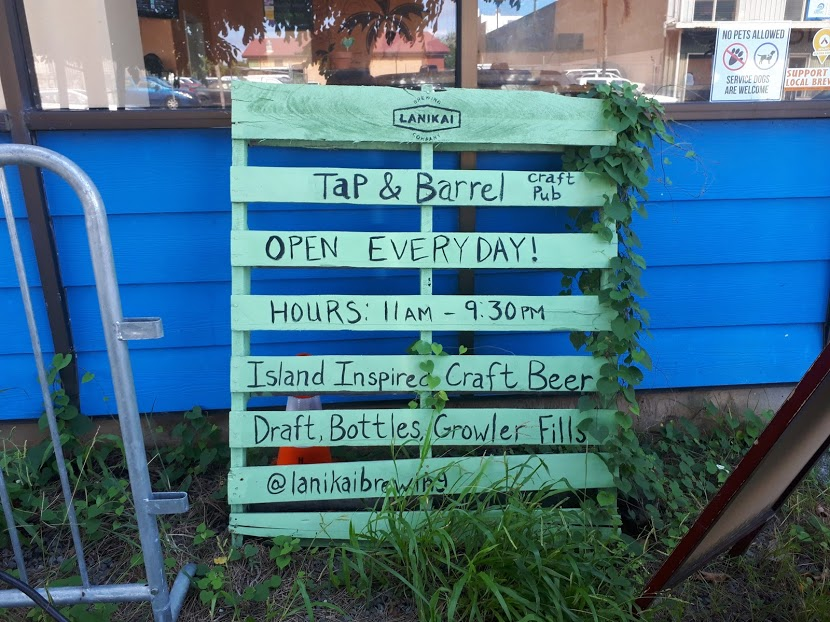 NO PETS ALLOWED
SERVICE DOGS
ARE WELCOME
SUPPORT
LOCAL BREW
BREWING
LANIKAI
COMPANY
TaP & Barrel craft
Pub
OPEN EVERYDAY!
HOURS: 11AM - 9:30PM
Island Inspired Craft Beer
Draft, Bottles, Growler Fills
@lanikaibrewing